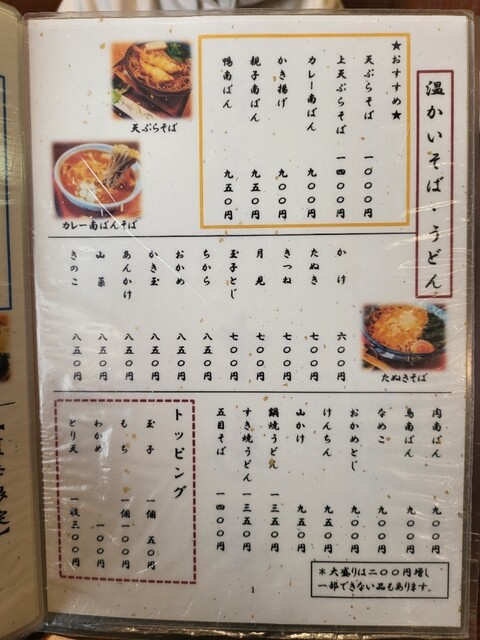 温かいそば・うどん
★おすすめ★
天ぷらそば 一〇〇〇円
上天ぷらそば 一四〇〇円
カレー南ばん 九〇〇円
かき揚げ 九〇〇円
親子南ばん 九五〇円
鴨南ばん 九五〇円
天ぷらそば
カレー南ばんそば
かけ 六〇〇円
たぬき 七〇〇円
きつね 七〇〇円
月見 七〇〇円
玉子とじ 七〇〇円
ちから 八五〇円
おかめ 八五〇円
かき玉 八五〇円
あんかけ 八五〇円
山菜 八五〇円
きのこ 八五〇円
たぬきそば
肉南ばん 九〇〇円
鳥南ばん 九〇〇円
なめこ 九〇〇円
おかめとじ 九〇〇円
けんちん 九五〇円
山かけ 九五〇円
鍋焼うどん 一三五〇円
すき焼うどん 一三五〇円
五目そば 一四〇〇円
トッピング
玉子 一個 五〇円
もち 一個一〇〇円
わかめ 一〇〇円
とり天 一枚三〇〇円
＊大盛りは二〇〇円増し
一部できない品もあります。
1